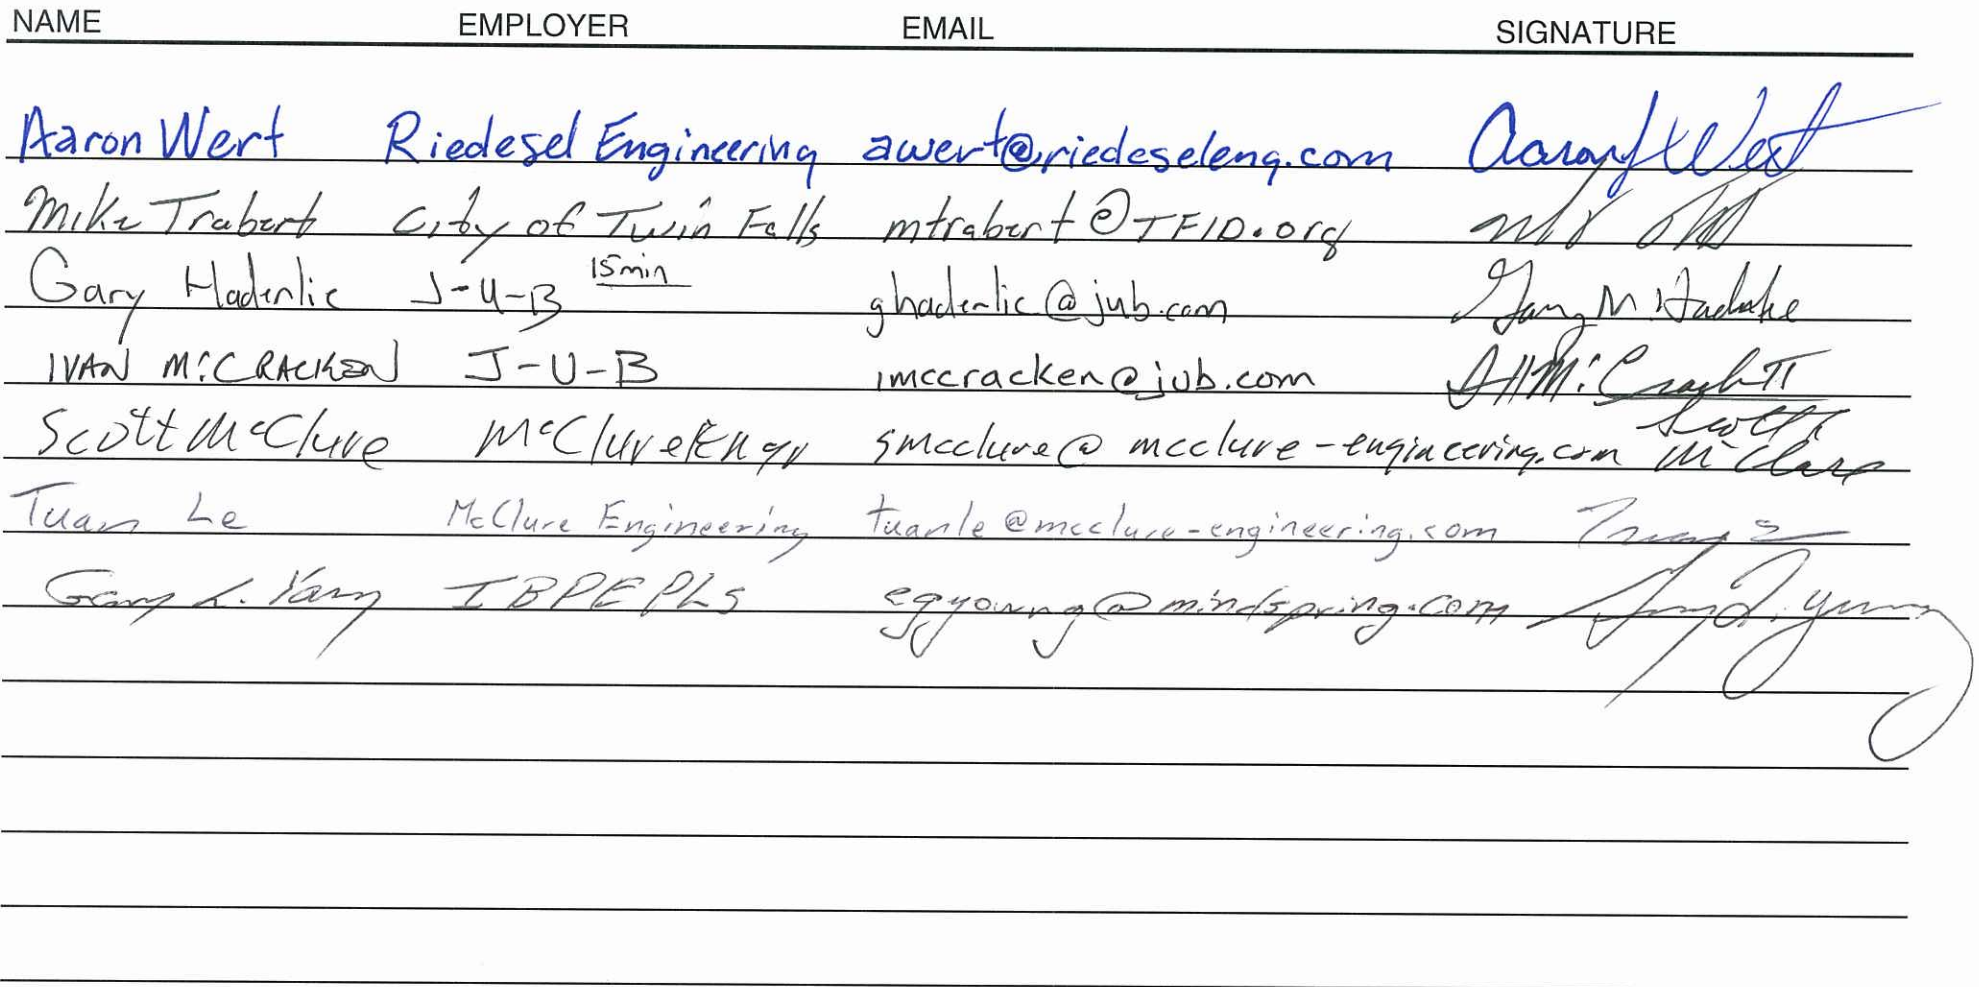 NAME EMPLOYER EMAIL SIGNATURE
Aaron Wert Riedesel Engineering awert@riedeseleng.com Aaron L Wert
Mike Trabert City of Twin Falls mtrabert@TFID.org
Gary Haderlie J-U-B 15min ghaderlie@jub.com Gary M. Haderlie
IVAN McCRACKEN J-U-B imccracken@jub.com
Scott McClure McClure Engr smcclure@mcclure-engineering.com Scott McClure
Tuan Le McClure Engineering tuanle@mcclure-engineering.com
Gary L. Young IBPEPLS egyoung@mindspring.com Gary L. Young